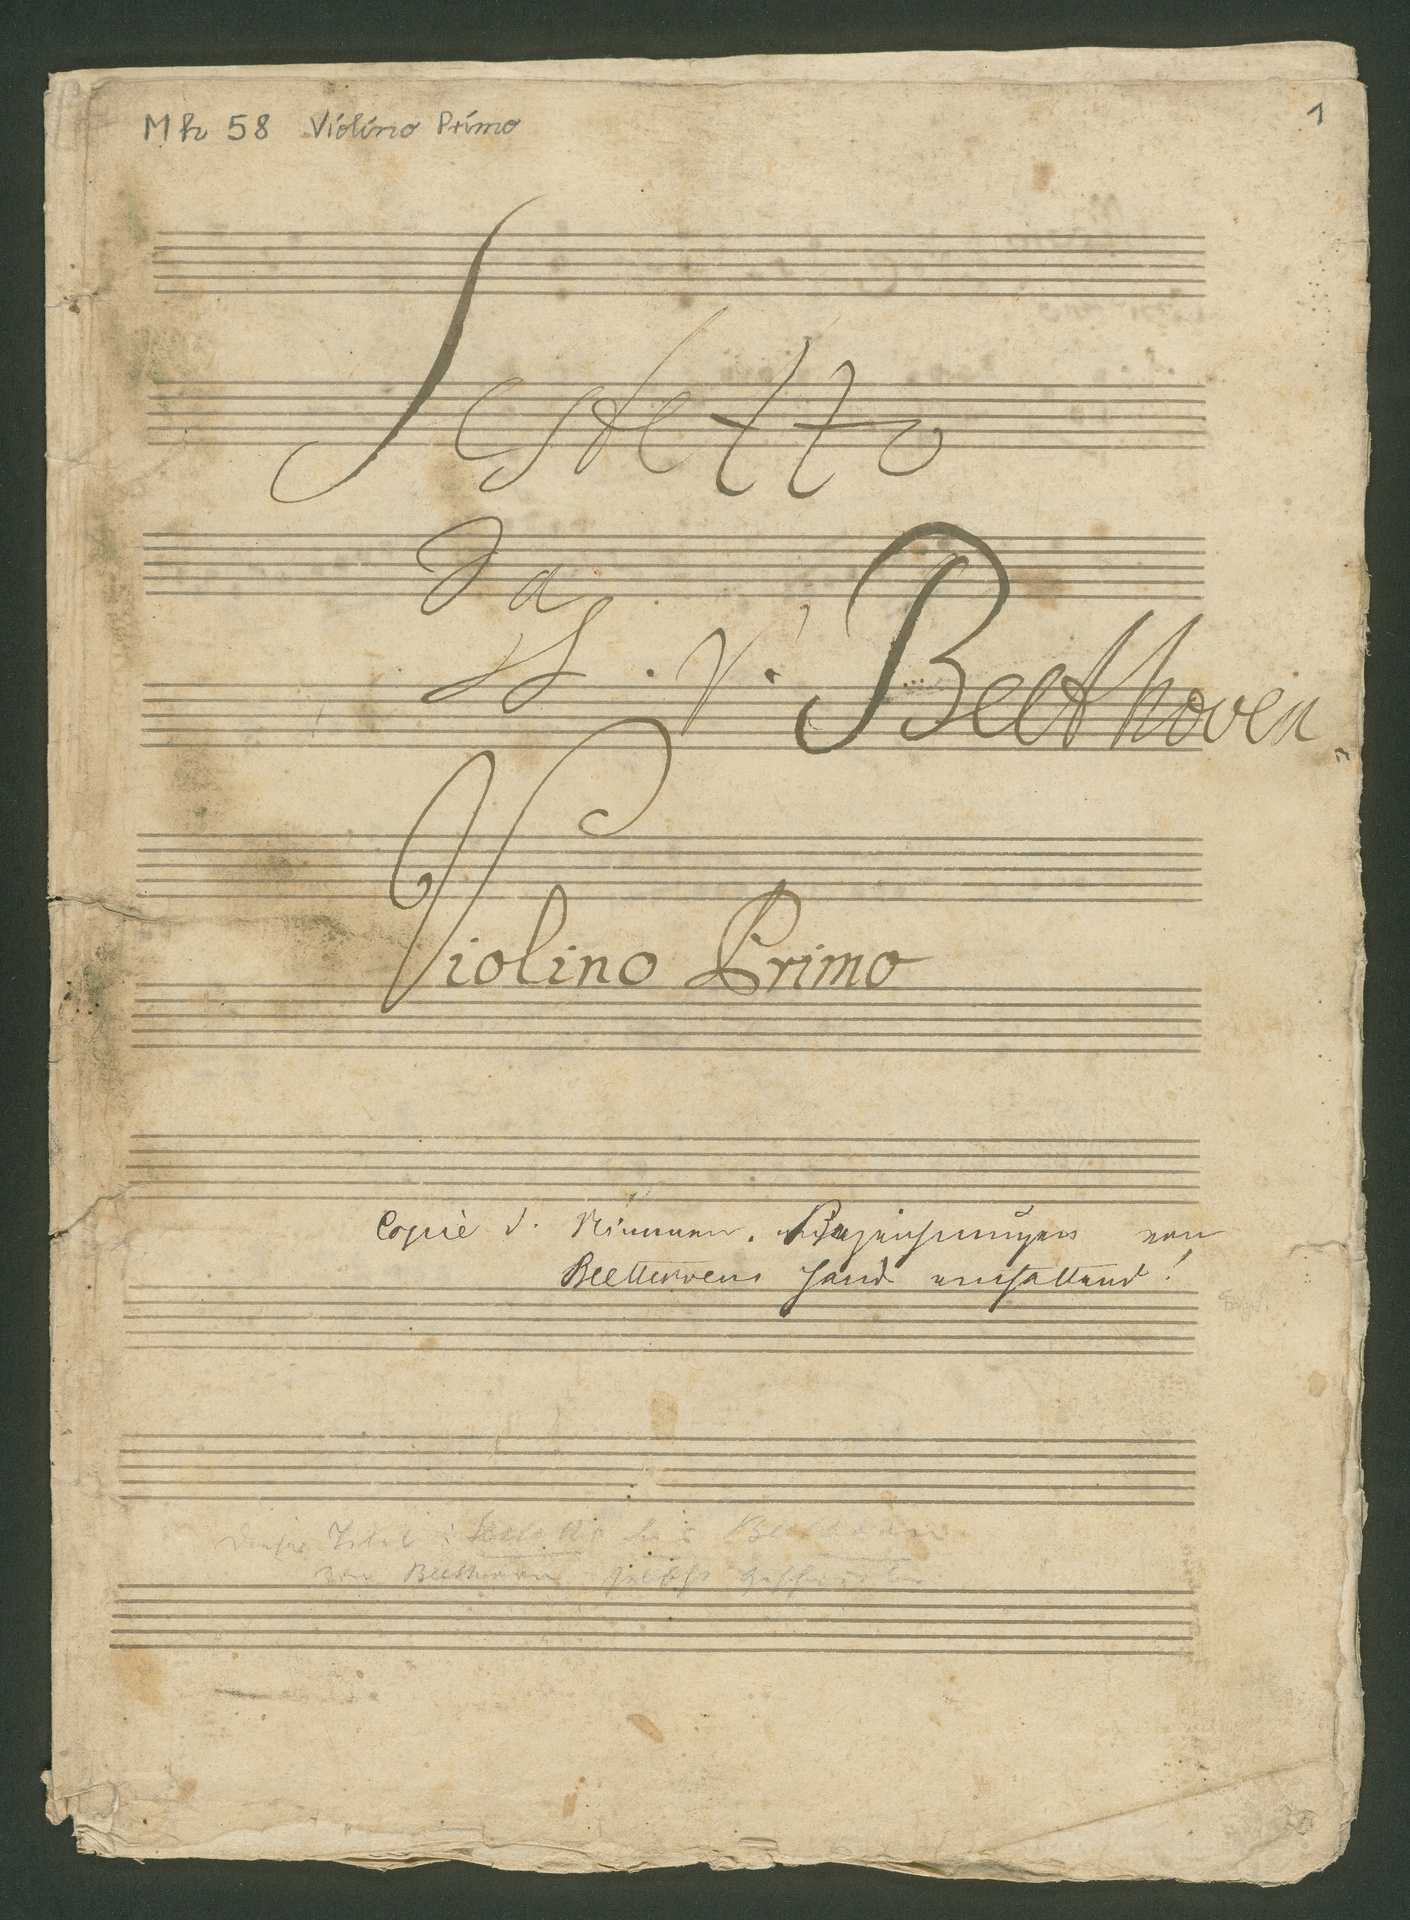 Mh 58 Violino Primo
1
Sestetto
Da
L. v. Beethoven
Violino Primo
Copie v. Bezeichnungen von
Beethovens Hand enthaltend!
Dieser Titel: Sestetto bis Beethoven
von Beethoven selbst geschrieben